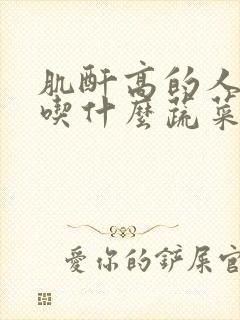 肌酐高的人
喫什麼蔬菜
愛你的鏟屎官